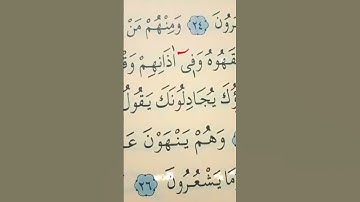 رُونَ ﴿٢٤﴾ وَمِنْهُمْ مَنْ
قَهُوهُ وَفِىٓ اٰذَانِهِمْ وَقْ
ؤُكَ يُجَادِلُونَكَ يَقُولُ
وَهُمْ يَنْهَوْنَ عَ
مَا يَشْعُرُونَ ﴿٢٦﴾